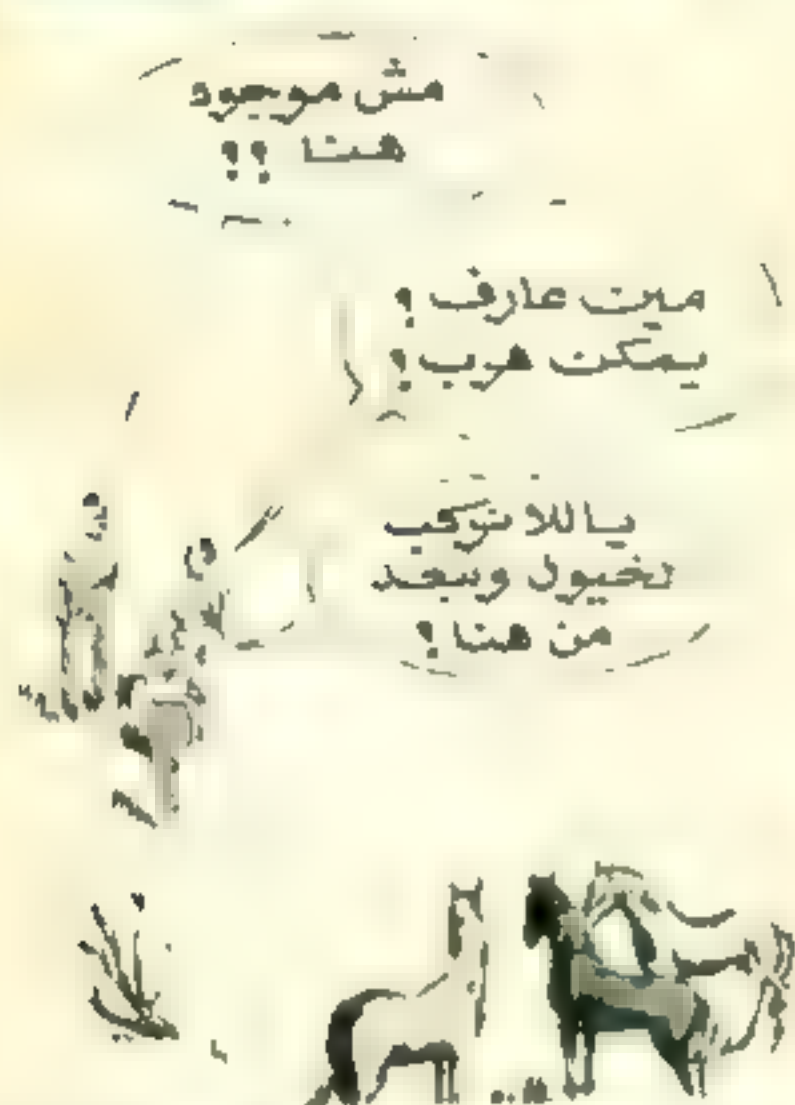 مش موجود
هنا ؟؟
مين عارف ؟
يمكن هرب ؟
ياللا نركب
لخيول ونبعد
من هنا ؟